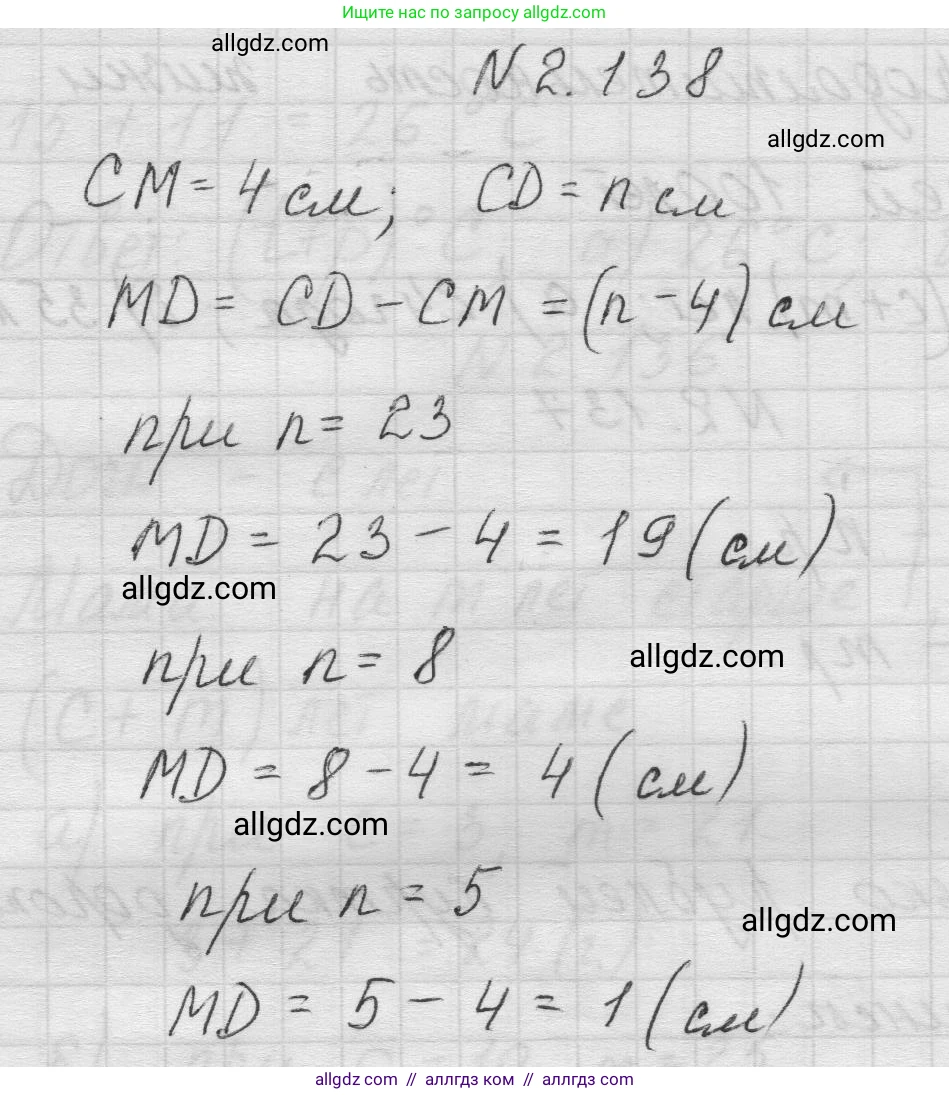 Ищите нас по запросу allgdz.com
allgdz.com
N 2.138
allgdz.com
CM = 4 см; CD = n см
MD = CD - CM = (n - 4) см
при n = 23
MD = 23 - 4 = 19 (см)
allgdz.com
при n = 8
allgdz.com
MD = 8 - 4 = 4 (см)
allgdz.com
при n = 5
allgdz.com
MD = 5 - 4 = 1 (см)
allgdz.com // аллгдз ком // аллгдз.com